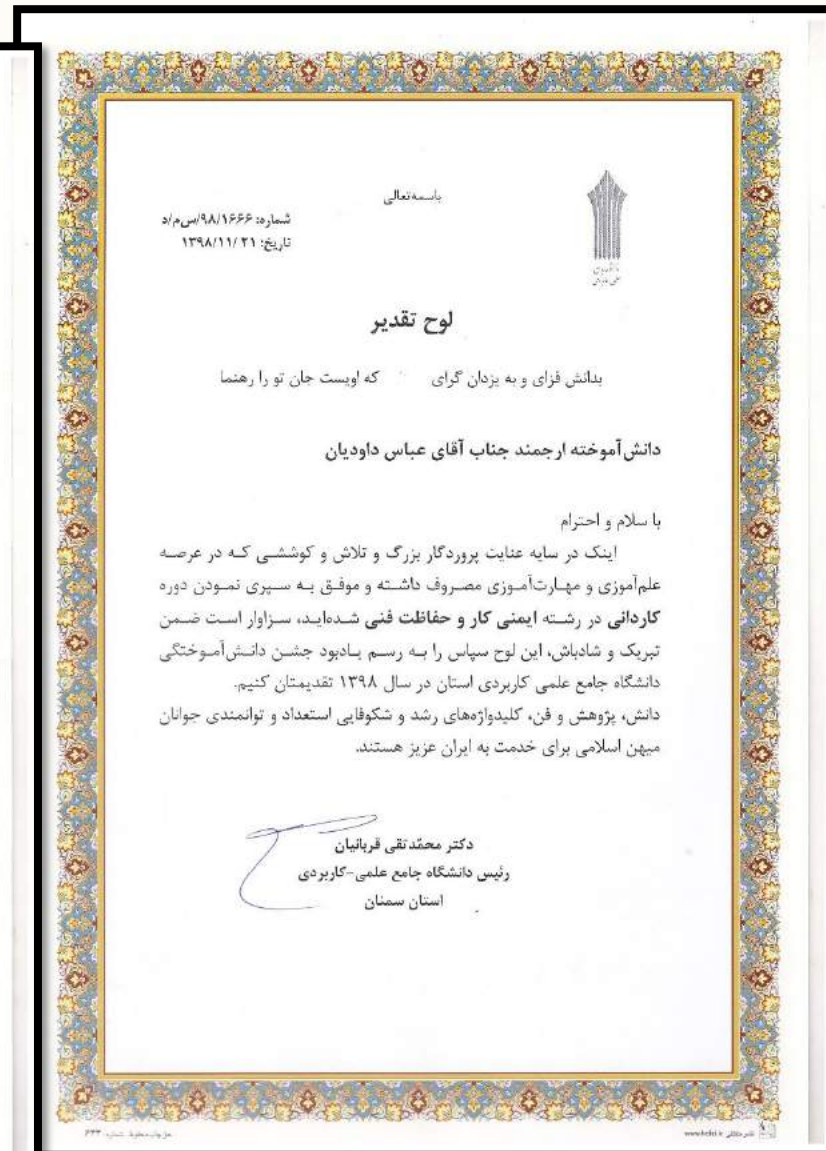 باسمه‌تعالی
شماره: ۹۸/۱۶۶۶/س‌م/د
تاریخ: ۱۳۹۸/۱۱/۲۱
لوح تقدیر
بدانش فزای و به یزدان گرای که اویست جان تو را رهنما
دانش‌آموخته ارجمند جناب آقای عباس داودیان
با سلام و احترام
اینک در سایه عنایت پروردگار بزرگ و تلاش و کوششی که در عرصه
علم‌آموزی و مهارت‌آموزی مصروف داشته و موفق به سپری نمودن دوره
کاردانی در رشته ایمنی کار و حفاظت فنی شده‌اید، سزاوار است ضمن
تبریک و شادباش، این لوح سپاس را به رسم یادبود جشن دانش‌آموختگی
دانشگاه جامع علمی کاربردی استان در سال ۱۳۹۸ تقدیمتان کنیم.
دانش، پژوهش و فن، کلیدواژه‌های رشد و شکوفایی استعداد و توانمندی جوانان
میهن اسلامی برای خدمت به ایران عزیز هستند.
دکتر محمّدتقی قربانیان
رئیس دانشگاه جامع علمی-کاربردی
استان سمنان